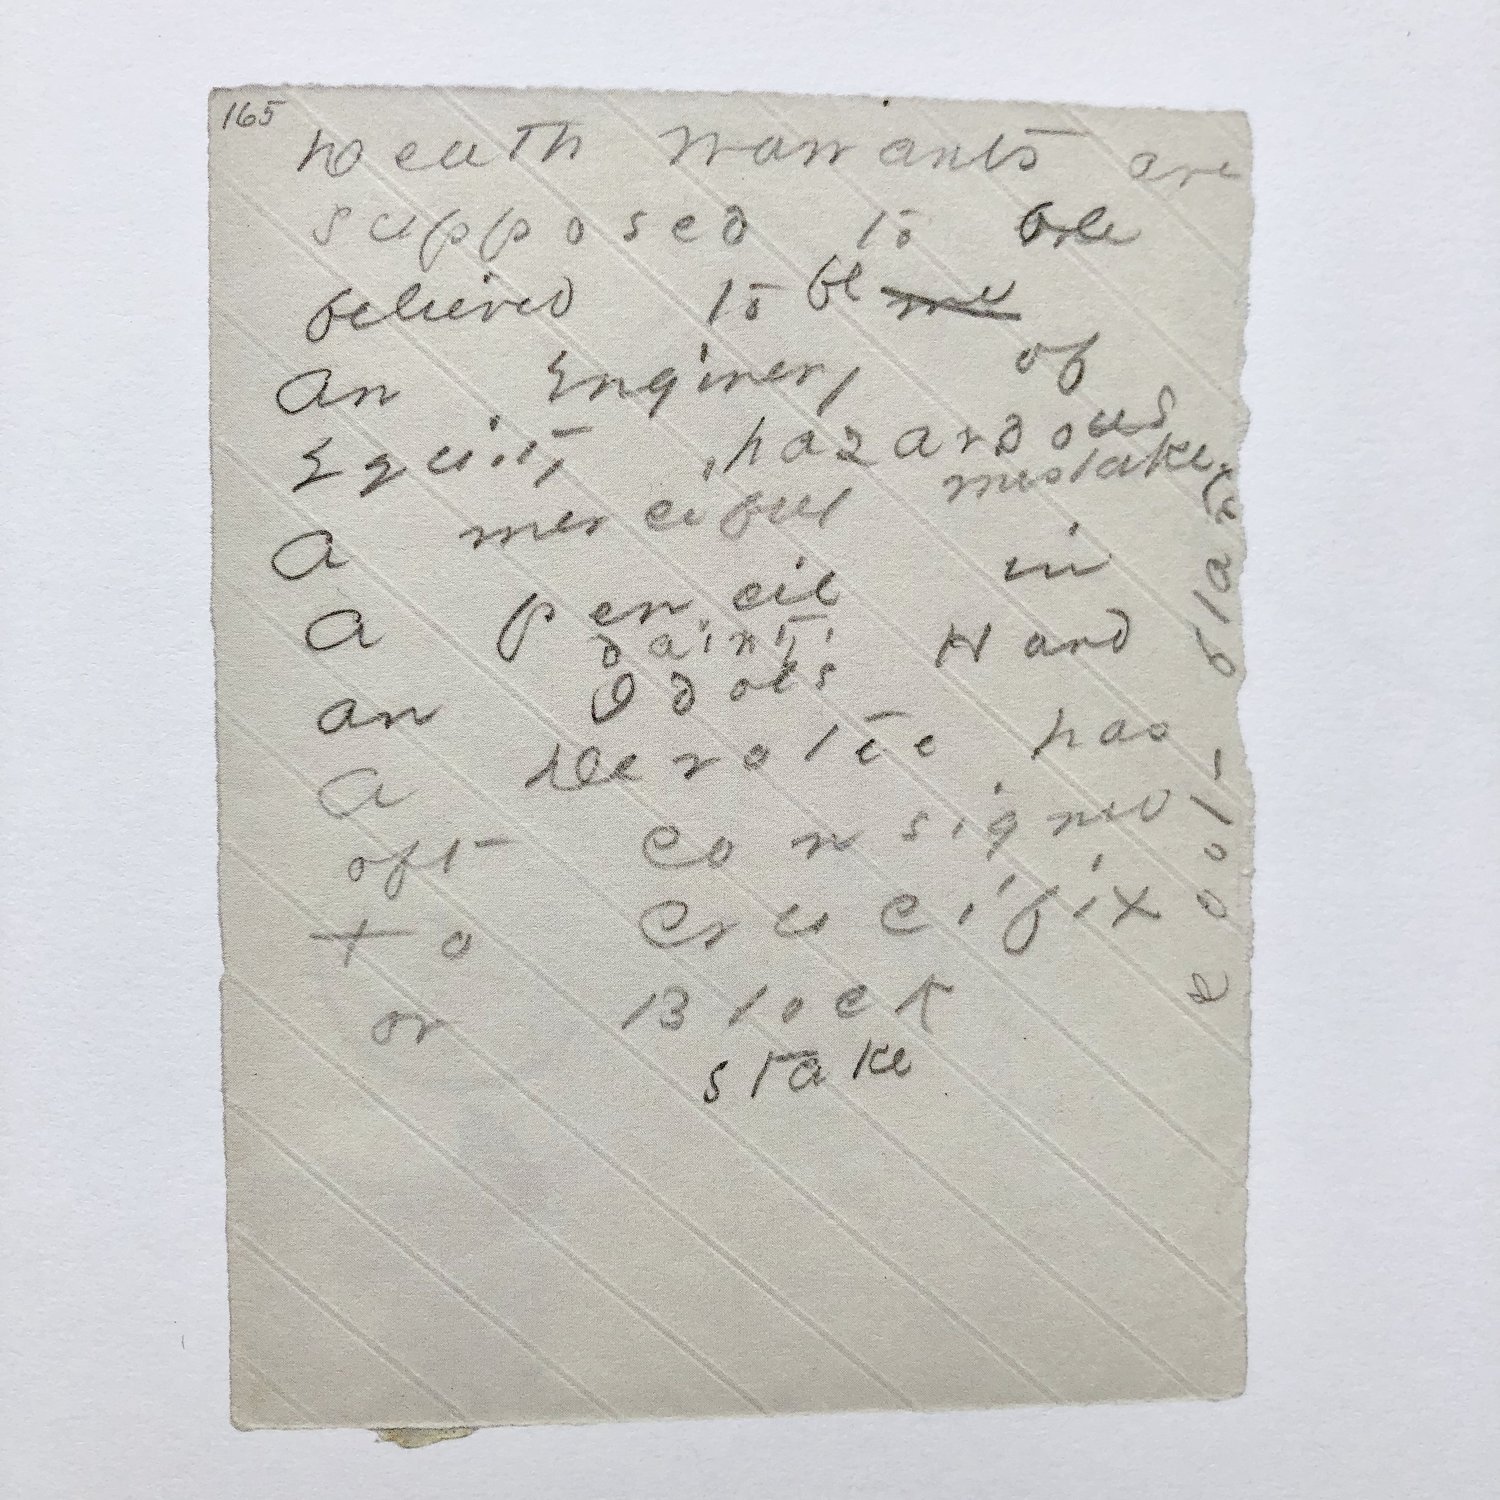 165
Death warrants are
supposed to be
believed to be
an Enginery of
Equity, hazardous
A merciful mistake
A pencil in
dainty Hand
an Idol's
A Devotee has
oft consigned
to Crucifix
or Block
stake
cool - bland